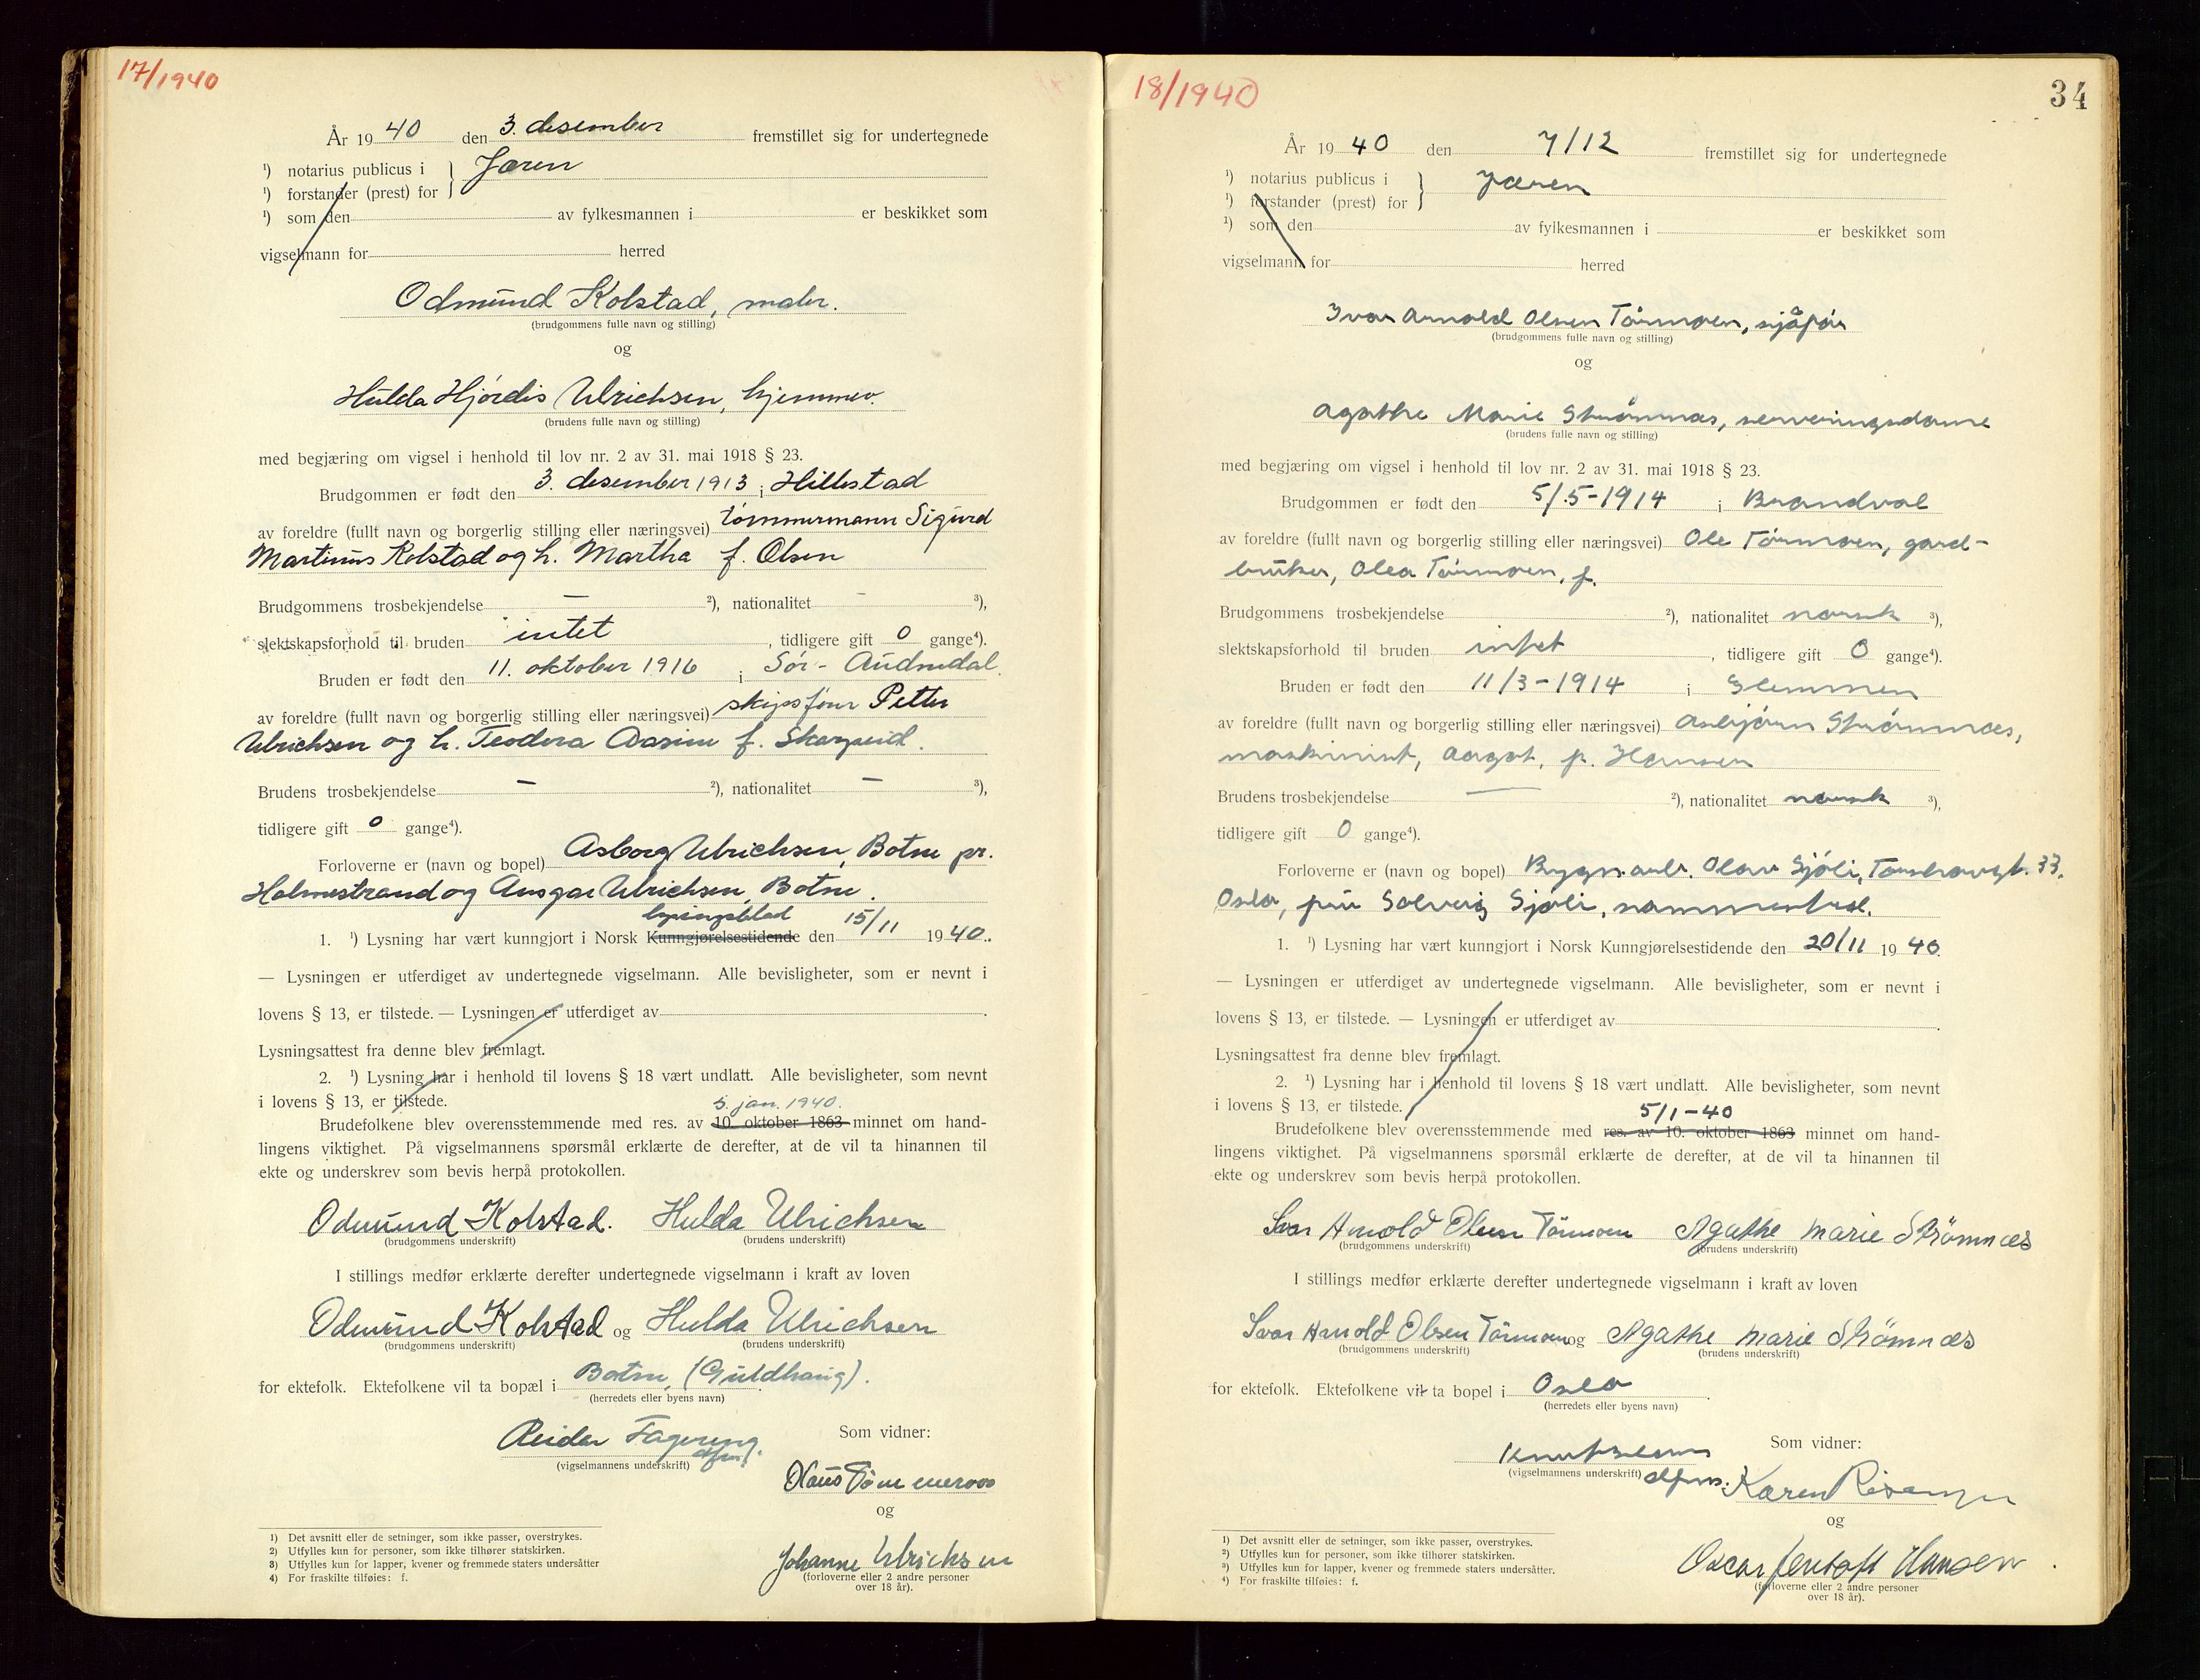 17/1940
År 19 40 den 3. desember fremstillet sig for undertegnede
¹) notarius publicus i } Jæren
¹) forstander (prest) for
¹) som den av fylkesmannen i er beskikket som
vigselmann for herred
Odmund Kolstad, maler.
(brudgommens fulle navn og stilling)
og
Hulda Hjördis Ulrichsen, hjemmev.
(brudens fulle navn og stilling)
med begjæring om vigsel i henhold til lov nr. 2 av 31. mai 1918 § 23.
Brudgommen er født den 3. desember 1913 i Hillestad
av foreldre (fullt navn og borgerlig stilling eller næringsvei) tømmermann Sigurd
Martinus Kolstad og h. Martha f. Olsen
Brudgommens trosbekjendelse — ²), nationalitet – ³),
slektskapsforhold til bruden intet, tidligere gift 0 gange⁴).
Bruden er født den 11. oktober 1916 i Sör-Audnedal
av foreldre (fullt navn og borgerlig stilling eller næringsvei) skipsförer Petter
Ulrichsen og h. Teodora Aasine f.
Brudens trosbekjendelse – ²), nationalitet – ³),
tidligere gift 0 gange⁴).
Forloverne er (navn og bopel) Asborg Ulrichsen, Botne pr.
Holmestrand og Ansgar Ulrichsen, Botne.
lysingsblad
1. ¹) Lysning har vært kunngjort i Norsk Kunngjørelsestidende den 15/11 1940.
— Lysningen er utferdiget av undertegnede vigselmann. Alle bevisligheter, som er nevnt i
lovens § 13, er tilstede. — Lysningen er utferdiget av
Lysningsattest fra denne blev fremlagt.
2. ¹) Lysning har i henhold til lovens § 18 vært undlatt. Alle bevisligheter, som nevnt
i lovens § 13, er tilstede.
5. jan. 1940.
Brudefolkene blev overensstemmende med res. av 10. oktober 1863 minnet om hand-
lingens viktighet. På vigselmannens spørsmål erklærte de derefter, at de vil ta hinannen til
ekte og underskrev som bevis herpå protokollen.
Odmund Kolstad. Hulda Ulrichsen
(brudgommens underskrift) (brudens underskrift)
I stillings medfør erklærte derefter undertegnede vigselmann i kraft av loven
Odmund Kolstad og Hulda Ulrichsen
(brudgommens underskrift) (brudens underskrift)
for ektefolk. Ektefolkene vil ta bopæl i Botne, (Guldhaug).
(herredets eller byens navn)
Reidar Fagereng
Som vidner:
(vigselmannens underskrift) dfm.
og
Johanne Ulrichsen
(forloverne eller 2 andre personer
over 18 år).
1) Det avsnitt eller de setninger, som ikke passer, overstrykes.
2) Utfylles kun for personer, som ikke tilhører statskirken.
3) Utfylles kun for lapper, kvener og fremmede staters undersåtter
4) For fraskilte tilføies: f.
18/1940
34
År 19 40 den 7/12 fremstillet sig for undertegnede
¹) notarius publicus i } Jæren
¹) forstander (prest) for
¹) som den av fylkesmannen i er beskikket som
vigselmann for herred
Ivar Arnold Olsen Törmoen, sjåför
(brudgommens fulle navn og stilling)
og
Agathe Marie Strömnæs, serveringsdame
(brudens fulle navn og stilling)
med begjæring om vigsel i henhold til lov nr. 2 av 31. mai 1918 § 23.
Brudgommen er født den 5/5-1914 i Brandval
av foreldre (fullt navn og borgerlig stilling eller næringsvei) Ole Törmoen, gard-
bruker, Olea Törmoen, f.
Brudgommens trosbekjendelse ²), nationalitet norsk ³),
slektskapsforhold til bruden intet, tidligere gift 0 gange⁴).
Bruden er født den 11/3-1914 i Glemmen
av foreldre (fullt navn og borgerlig stilling eller næringsvei) Asbjörn Strömnæs,
maskinist, Aagot, f. Hansen
Brudens trosbekjendelse — ²), nationalitet norsk ³),
tidligere gift 0 gange⁴).
Forloverne er (navn og bopel) Bygn.arb. Olav Sjöli, 33,
Oslo, fru Solveig Sjöli, sammested.
1. ¹) Lysning har vært kunngjort i Norsk Kunngjørelsestidende den 20/11 1940.
— Lysningen er utferdiget av undertegnede vigselmann. Alle bevisligheter, som er nevnt i
lovens § 13, er tilstede. — Lysningen er utferdiget av
Lysningsattest fra denne blev fremlagt.
2. ¹) Lysning har i henhold til lovens § 18 vært undlatt. Alle bevisligheter, som nevnt
i lovens § 13, er tilstede.
5/1-40
Brudefolkene blev overensstemmende med res. av 10. oktober 1863 minnet om hand-
lingens viktighet. På vigselmannens spørsmål erklærte de derefter, at de vil ta hinannen til
ekte og underskrev som bevis herpå protokollen.
Ivar Arnold Olsen Törmoen Agathe Marie Strömnæs
(brudgommens underskrift) (brudens underskrift)
I stillings medfør erklærte derefter undertegnede vigselmann i kraft av loven
Ivar Arnold Olsen Törmoen og Agathe Marie Strömnæs
(brudgommens underskrift) (brudens underskrift)
for ektefolk. Ektefolkene vil ta bopel i Oslo.
(herredets eller byens navn)
Som vidner:
(vigselmannens underskrift) dfm. Karen
og
Oscar Hansen
(forloverne eller 2 andre personer
over 18 år).
¹) Det avsnitt eller de setninger, som ikke passer, overstrykes.
²) Utfylles kun for personer, som ikke tilhører statskirken.
³) Utfylles kun for lapper, kvener og fremmede staters undersåtter.
⁴) For fraskilte tilføies: f.